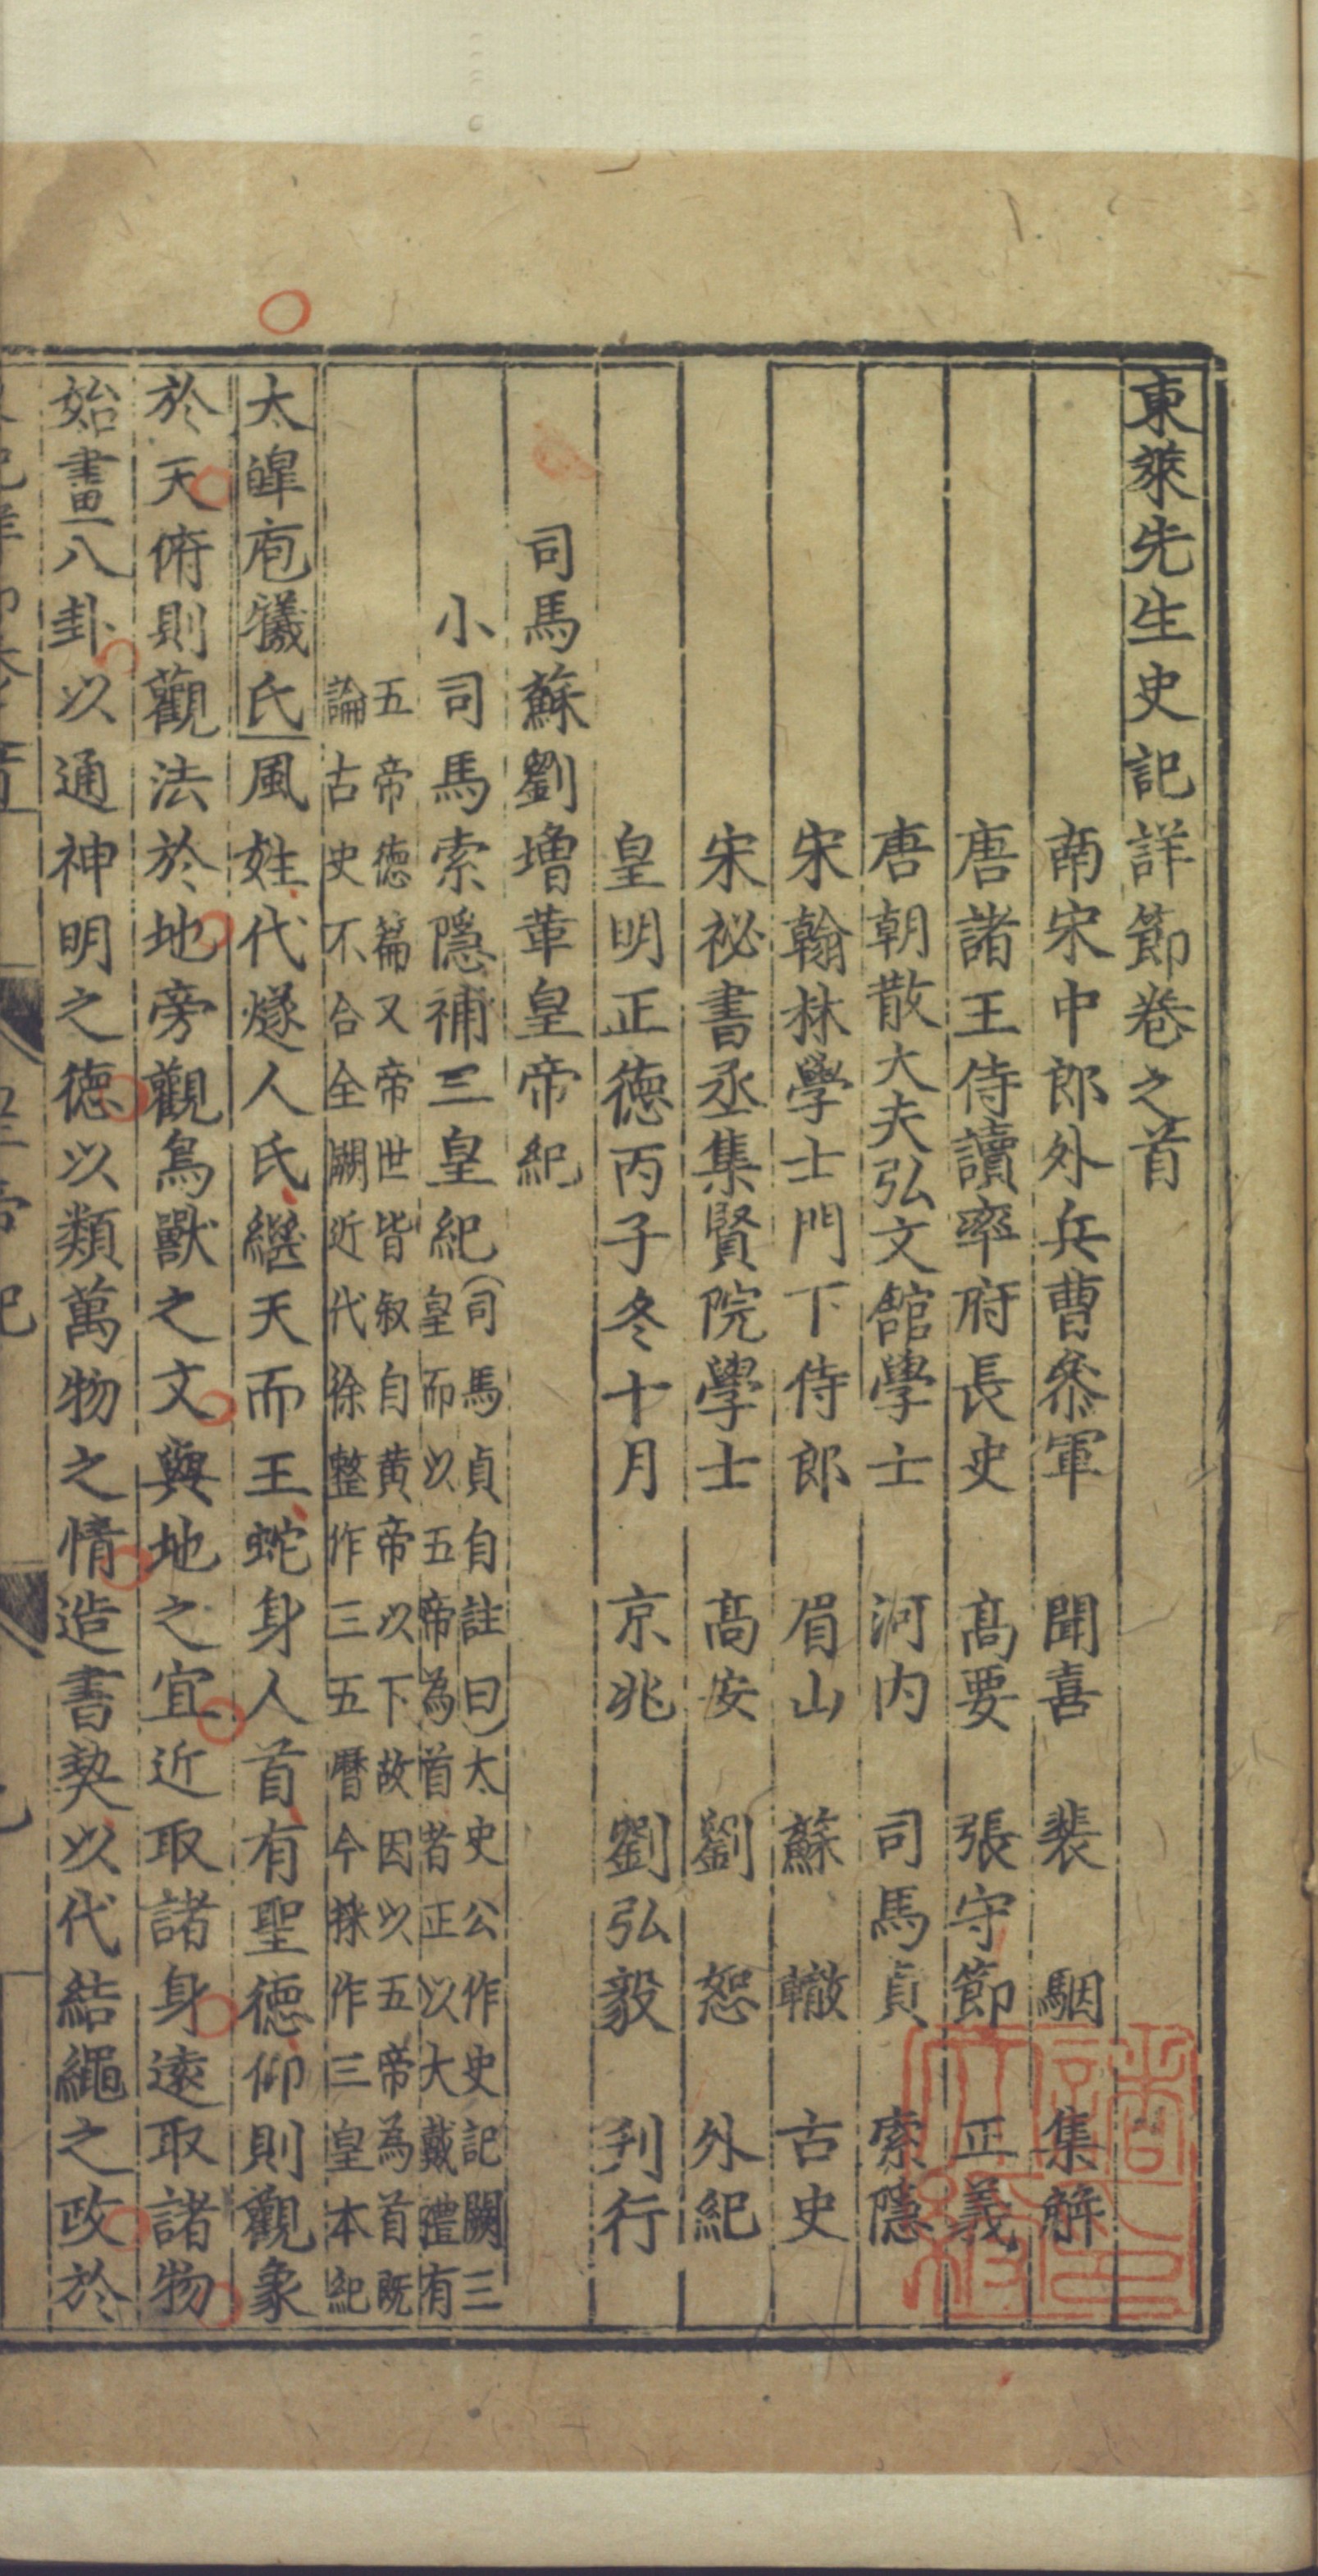 東萊先生史記詳節卷之首
南宋中郎外兵曹叅軍　聞喜　裴　駰　集解
唐諸王侍讀率府長史　髙要　張守節　正義
唐朝散大夫弘文舘學士　河内　司馬貞　索隱
宋翰林學士門下侍郎　眉山　蘇　轍　古史
宋祕書丞集賢院學士　髙安　劉　恕　外紀
皇明正德丙子冬十月　京兆　劉弘毅　刋行
司馬蘇劉増革皇帝紀
小司馬索隱補三皇紀
(司馬貞自註曰)太史公作史記闕三
皇而以五帝為首者正以大戴禮有
五帝德篇又帝世皆叙自黄帝以下故因以五帝為首既
論古史不合全闕近代徐整作三五曆今採作三皇本紀
太皥庖犧氏風姓代燧人氏繼天而王蛇身人首有聖德仰則觀象
於天俯則觀法於地旁觀鳥獸之文與地之宜近取諸身遠取諸物
始畫八卦以通神明之德以類萬物之情造書契以代結繩之政於